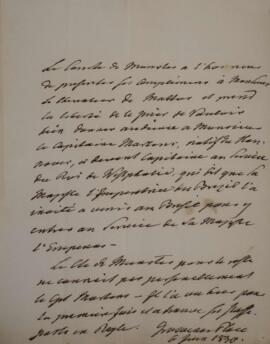 Le Comte de Munster a l'honneur
de présenter ses complimens à Monsieur
le Sénateur de Mattos et prend
la liberté de le prier de vouloir
bien donner audience à Monsieur
le Capitaine Martens, natif d'Han-
novre, et devant Capitaine au Service
du Roi de Westphalie, qui dit que Sa
Majesté l'Impératrice du Brésil l'a
invité à venir au Brésil pour y
entrer au Service de Sa Majesté
l'Empereur —
Le Cte de Munster pour le reste
ne connait pas personnellement
le Cpt Martens — Il l'a vu hier pour
la première fois et a trouvé ses passe-
ports en Règle.
Grosvenor Place
6 1830